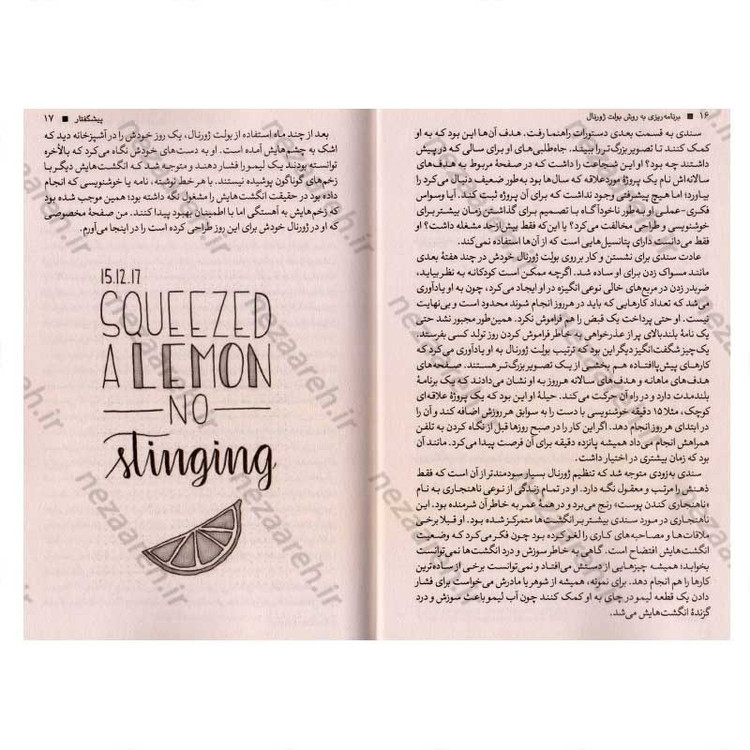 ۱۶ ■ برنامه‌ریزی به روش بولت ژورنال
سندی به قسمت بعدی دستورات راهنما رفت. هدف آن‌ها این بود که به او
کمک کنند تا تصویر بزرگ‌تر را ببیند. جاه‌طلبی‌های او برای سالی که در پیش
داشتند چه بود؟ او این شجاعت را داشت که در صفحهٔ مربوط به هدف‌های
سالانه‌اش نام یک پروژهٔ موردعلاقه که سال‌ها بود به‌طور ضعیف دنبال می‌کرد را
بیاورد؛ اما هیچ پیشرفتی وجود نداشت که برای آن پروژه ثبت کند. آیا وسواس
فکری-عملی او به‌طور ناخودآگاه با تصمیم برای گذاشتن زمان بیشتر برای
خوشنویسی و طراحی مخالفت می‌کرد؟ یا این‌که فقط بیش‌ازحد مشغله داشت؟ او
فقط می‌دانست دارای پتانسیل‌هایی است که از آن‌ها استفاده نمی‌کند.
عادت سندی برای نشستن و کار بر روی بولت ژورنال خودش در چند هفتهٔ بعدی
مانند مسواک زدن برای او ساده شد. اگرچه ممکن است کودکانه به نظر بیاید،
ضربدر زدن در مربع‌های خالی نوعی انگیزه در او ایجاد می‌کرد، چون به او یادآوری
می‌شد که تعداد کارهایی که باید در هرروز انجام شوند محدود است و بی‌نهایت
نیست. او حتی پرداخت یک قبض را هم فراموش نکرد. همین‌طور مجبور نشد حتی
یک نامهٔ بلندبالای پر از عذرخواهی به خاطر فراموش کردن روز تولد کسی بفرستد.
یک‌چیز شگفت‌انگیز دیگر این بود که ترتیب بولت ژورنال به او یادآوری می‌کرد که
کارهای پیش‌پاافتاده هم بخشی از یک تصویر بزرگ‌تر هستند. صفحه‌های
هدف‌های ماهانه و هدف‌های سالانه هرروز به او نشان می‌دادند که یک برنامهٔ
بلندمدت دارد و در راه آن حرکت می‌کند. حیلهٔ او این بود که یک پروژهٔ علاقه‌ای
کوچک، مثلا ۱۵ دقیقه خوشنویسی با دست را به سوابق هرروزش اضافه کند و آن را
در ابتدای هرروز انجام دهد. اگر این کار را در صبح روزها قبل از نگاه کردن به تلفن
همراهش انجام می‌داد همیشه پانزده دقیقه برای آن فرصت پیدا می‌کرد. مانند آن
بود که زمان بیشتری در اختیار داشت.
سندی به‌زودی متوجه شد که تنظیم ژورنال بسیار سودمندتر از آن است که فقط
ذهنش را مرتب و معقول نگه دارد. او در تمام زندگی از نوعی ناهنجاری به نام
«ناهنجاری کندن پوست» رنج می‌برد و در همهٔ عمر به خاطر آن شرمنده بود. این
ناهنجاری در مورد سندی بیشتر بر انگشت‌ها متمرکز شده بود. او قبلا برخی
ملاقات‌ها و مصاحبه‌های کاری را لغو کرده بود چون فکر می‌کرد که وضعیت
انگشت‌هایش افتضاح است. گاهی به خاطر سوزش و درد انگشت‌ها نمی‌توانست
بخوابد؛ همیشه چیزهایی از دستش می‌افتاد و نمی‌توانست برخی از ساده‌ترین
کارها را هم انجام دهد. برای نمونه، همیشه از شوهر یا مادرش می‌خواست برای فشار
دادن یک قطعه لیمو در چای به او کمک کنند چون آب لیمو باعث سوزش و درد
گزندهٔ انگشت‌هایش می‌شد.
پیشگفتار ■ ۱۷
بعد از چند ماه استفاده از بولت ژورنال، یک روز خودش را در آشپزخانه دید که
اشک به چشم‌هایش آمده است. او به دست‌های خودش نگاه می‌کرد که بالأخره
توانسته بودند یک لیمو را فشار دهند و متوجه شد که انگشت‌هایش دیگر با
زخم‌های گوناگون پوشیده نیستند. با هر خط نوشته، نامه یا خوشنویسی که انجام
داده بود در حقیقت انگشت‌هایش را مشغول نگه داشته بود؛ همین موجب شده بود
که زخم‌هایش به آهستگی اما با اطمینان بهبود پیدا کنند. من صفحهٔ مخصوصی
که او در ژورنال خودش برای این روز طراحی کرده است را در اینجا می‌آورم.
15.12.17
SQUEEZED
A LEMON
NO
stinging
nezaareh.ir